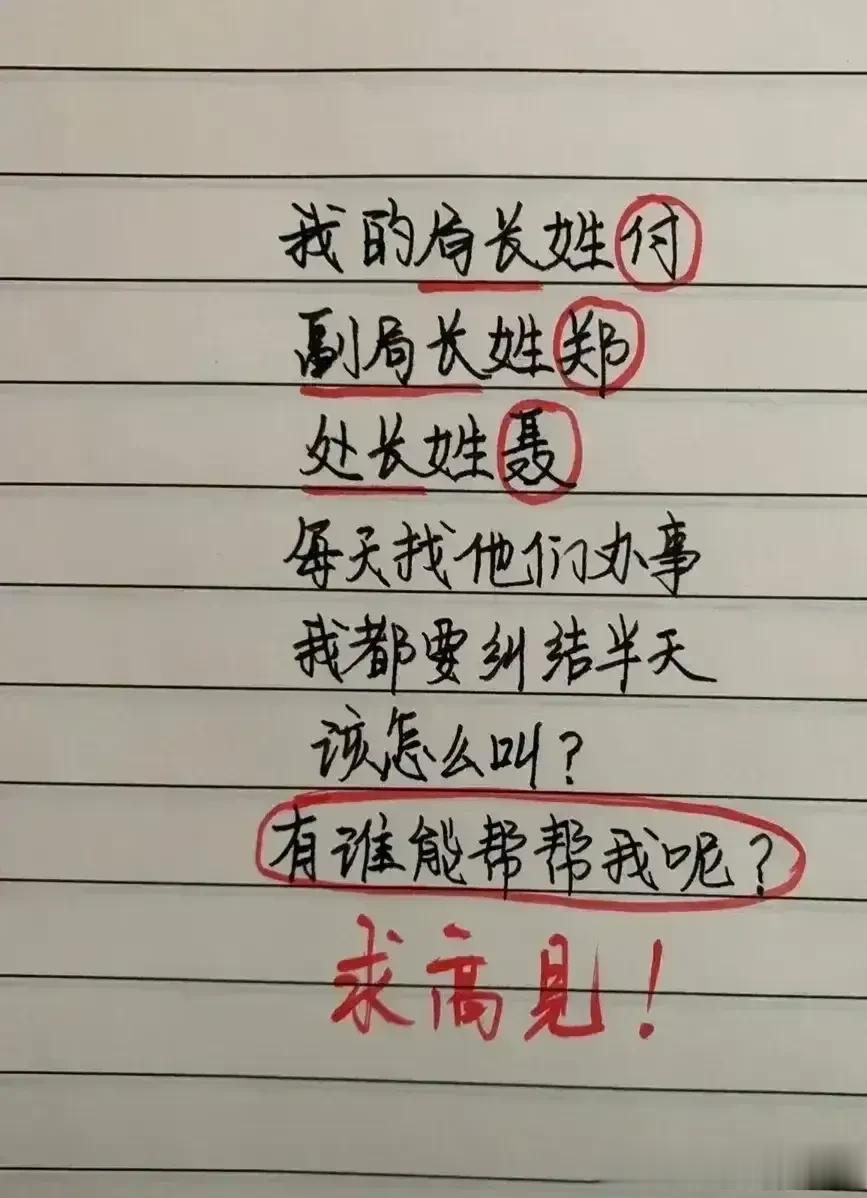 我的局长姓付
副局长姓郑
处长姓聂
每天找他们办事
我都要纠结半天
该怎么叫？
有谁能帮帮我呢？
求高見！